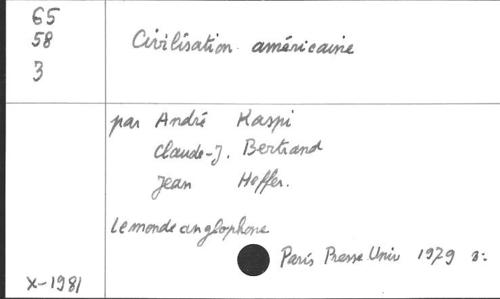 65
58
3
Civilisation américaine
par André Kaspi
Claude-J. Bertrand
Jean Heffer.
Le monde anglophone
Paris Presse Univ 1979
X-1981